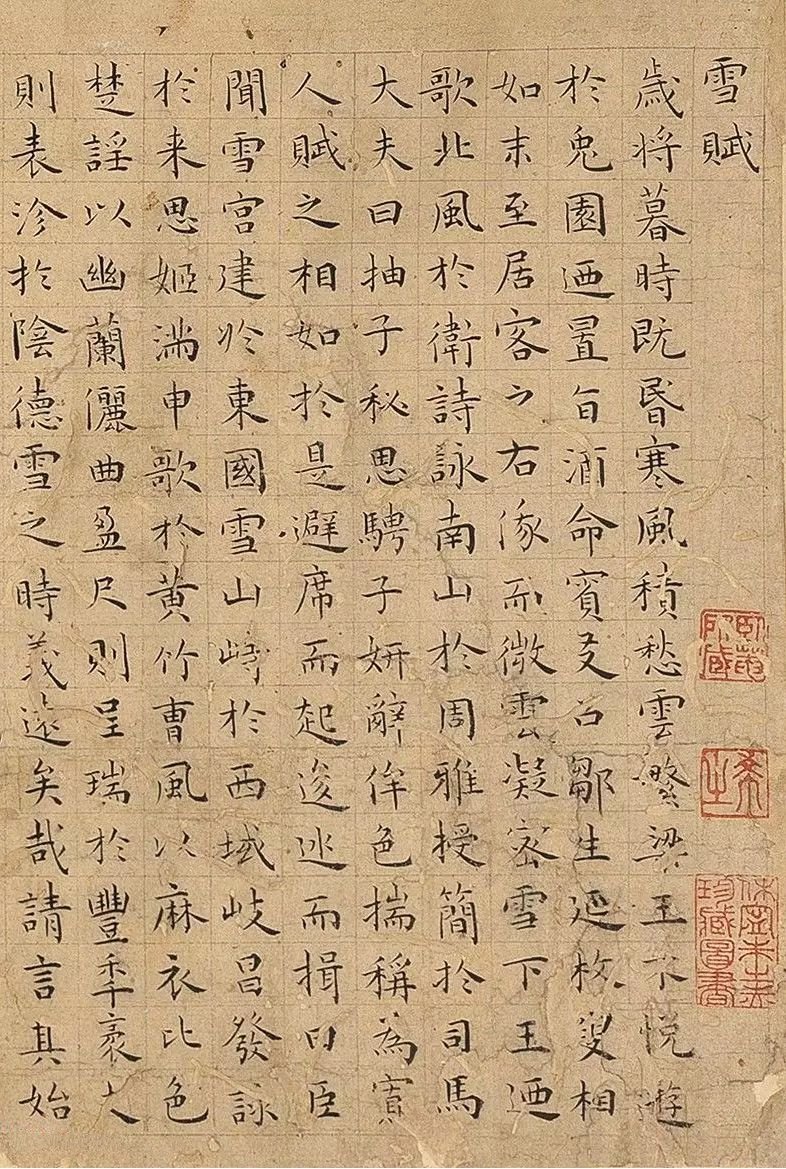 雪賦
歲將暮時既昬寒風積愁雲繁梁王不悅遊
於兔園迺置旨酒命賓友召鄒生延枚叟相
如末至居客之右俄而微雲凝密雪下王迺
歌北風於衛詩詠南山於周雅授簡於司馬
大夫曰抽子秘思騁子妍辭侔色揣稱為寡
人賦之相如於是避席而起逡巡而揖曰臣
聞雪宮建於東國雪山峙於西域岐昌發詠
於来思姬滿申歌於黃竹曹風以麻衣比色
楚謡以幽蘭儷曲盈尺則呈瑞於豐年袤丈
則表沴於陰德雪之時義遠矣哉請言其始